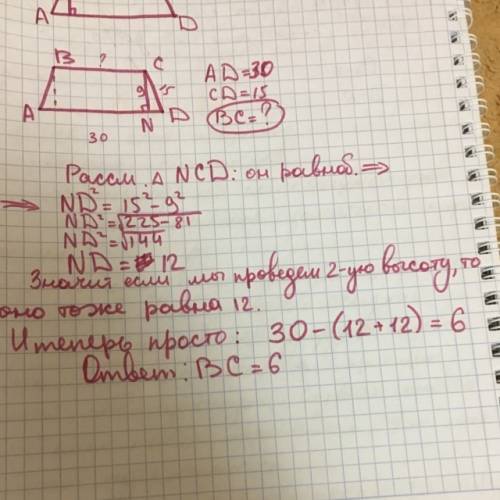 A D
B ? C
9 15
A N D
30
AD=30
CD=15
BC=?
Рассм. △ NCD: он равноб. ⇒
⇒ ND²=15²-9²
ND²=√225-81
ND²=√144
ND=12
Значит если мы проведем 2-ую высоту, то
оно тоже равна 12.
И теперь просто: 30-(12+12)=6
Ответ: BC=6